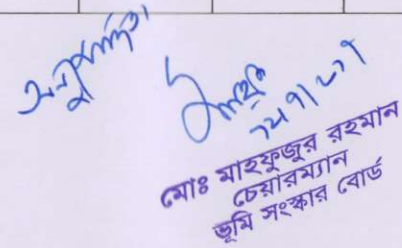 অনুমোদিত।
মোঃ মাহফুজুর রহমান
চেয়ারম্যান
ভূমি সংস্কার বোর্ড